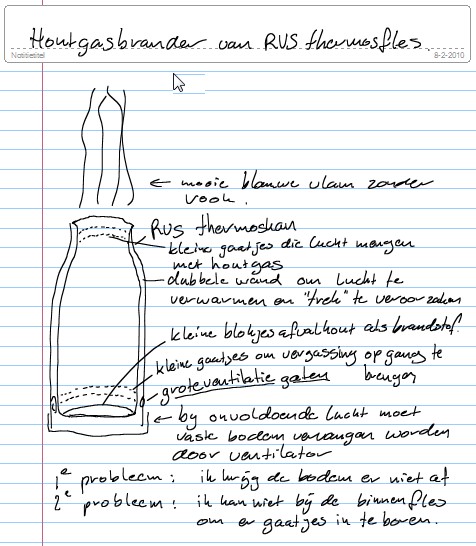 Houtgasbrander van RVS thermosfles.
Notitietitel
8-2-2010
← mooie blauwe vlam zonder
rook.
RVS thermoskan
kleine gaatjes die lucht mengen
met houtgas
dubbele wand om lucht te
verwarmen en "trek" te veroorzaken
kleine blokjes afvalhout als brandstof.
kleine gaatjes om vergassing op gang te
brengen
grote ventilatie gaten
← by onvoldoende lucht moet
vaste bodem vervangen worden
door ventilator
1e probleem: ik krijg de bodem er niet af
2e probleem: ik kan niet bij de binnenfles
om er gaatjes in te boren.